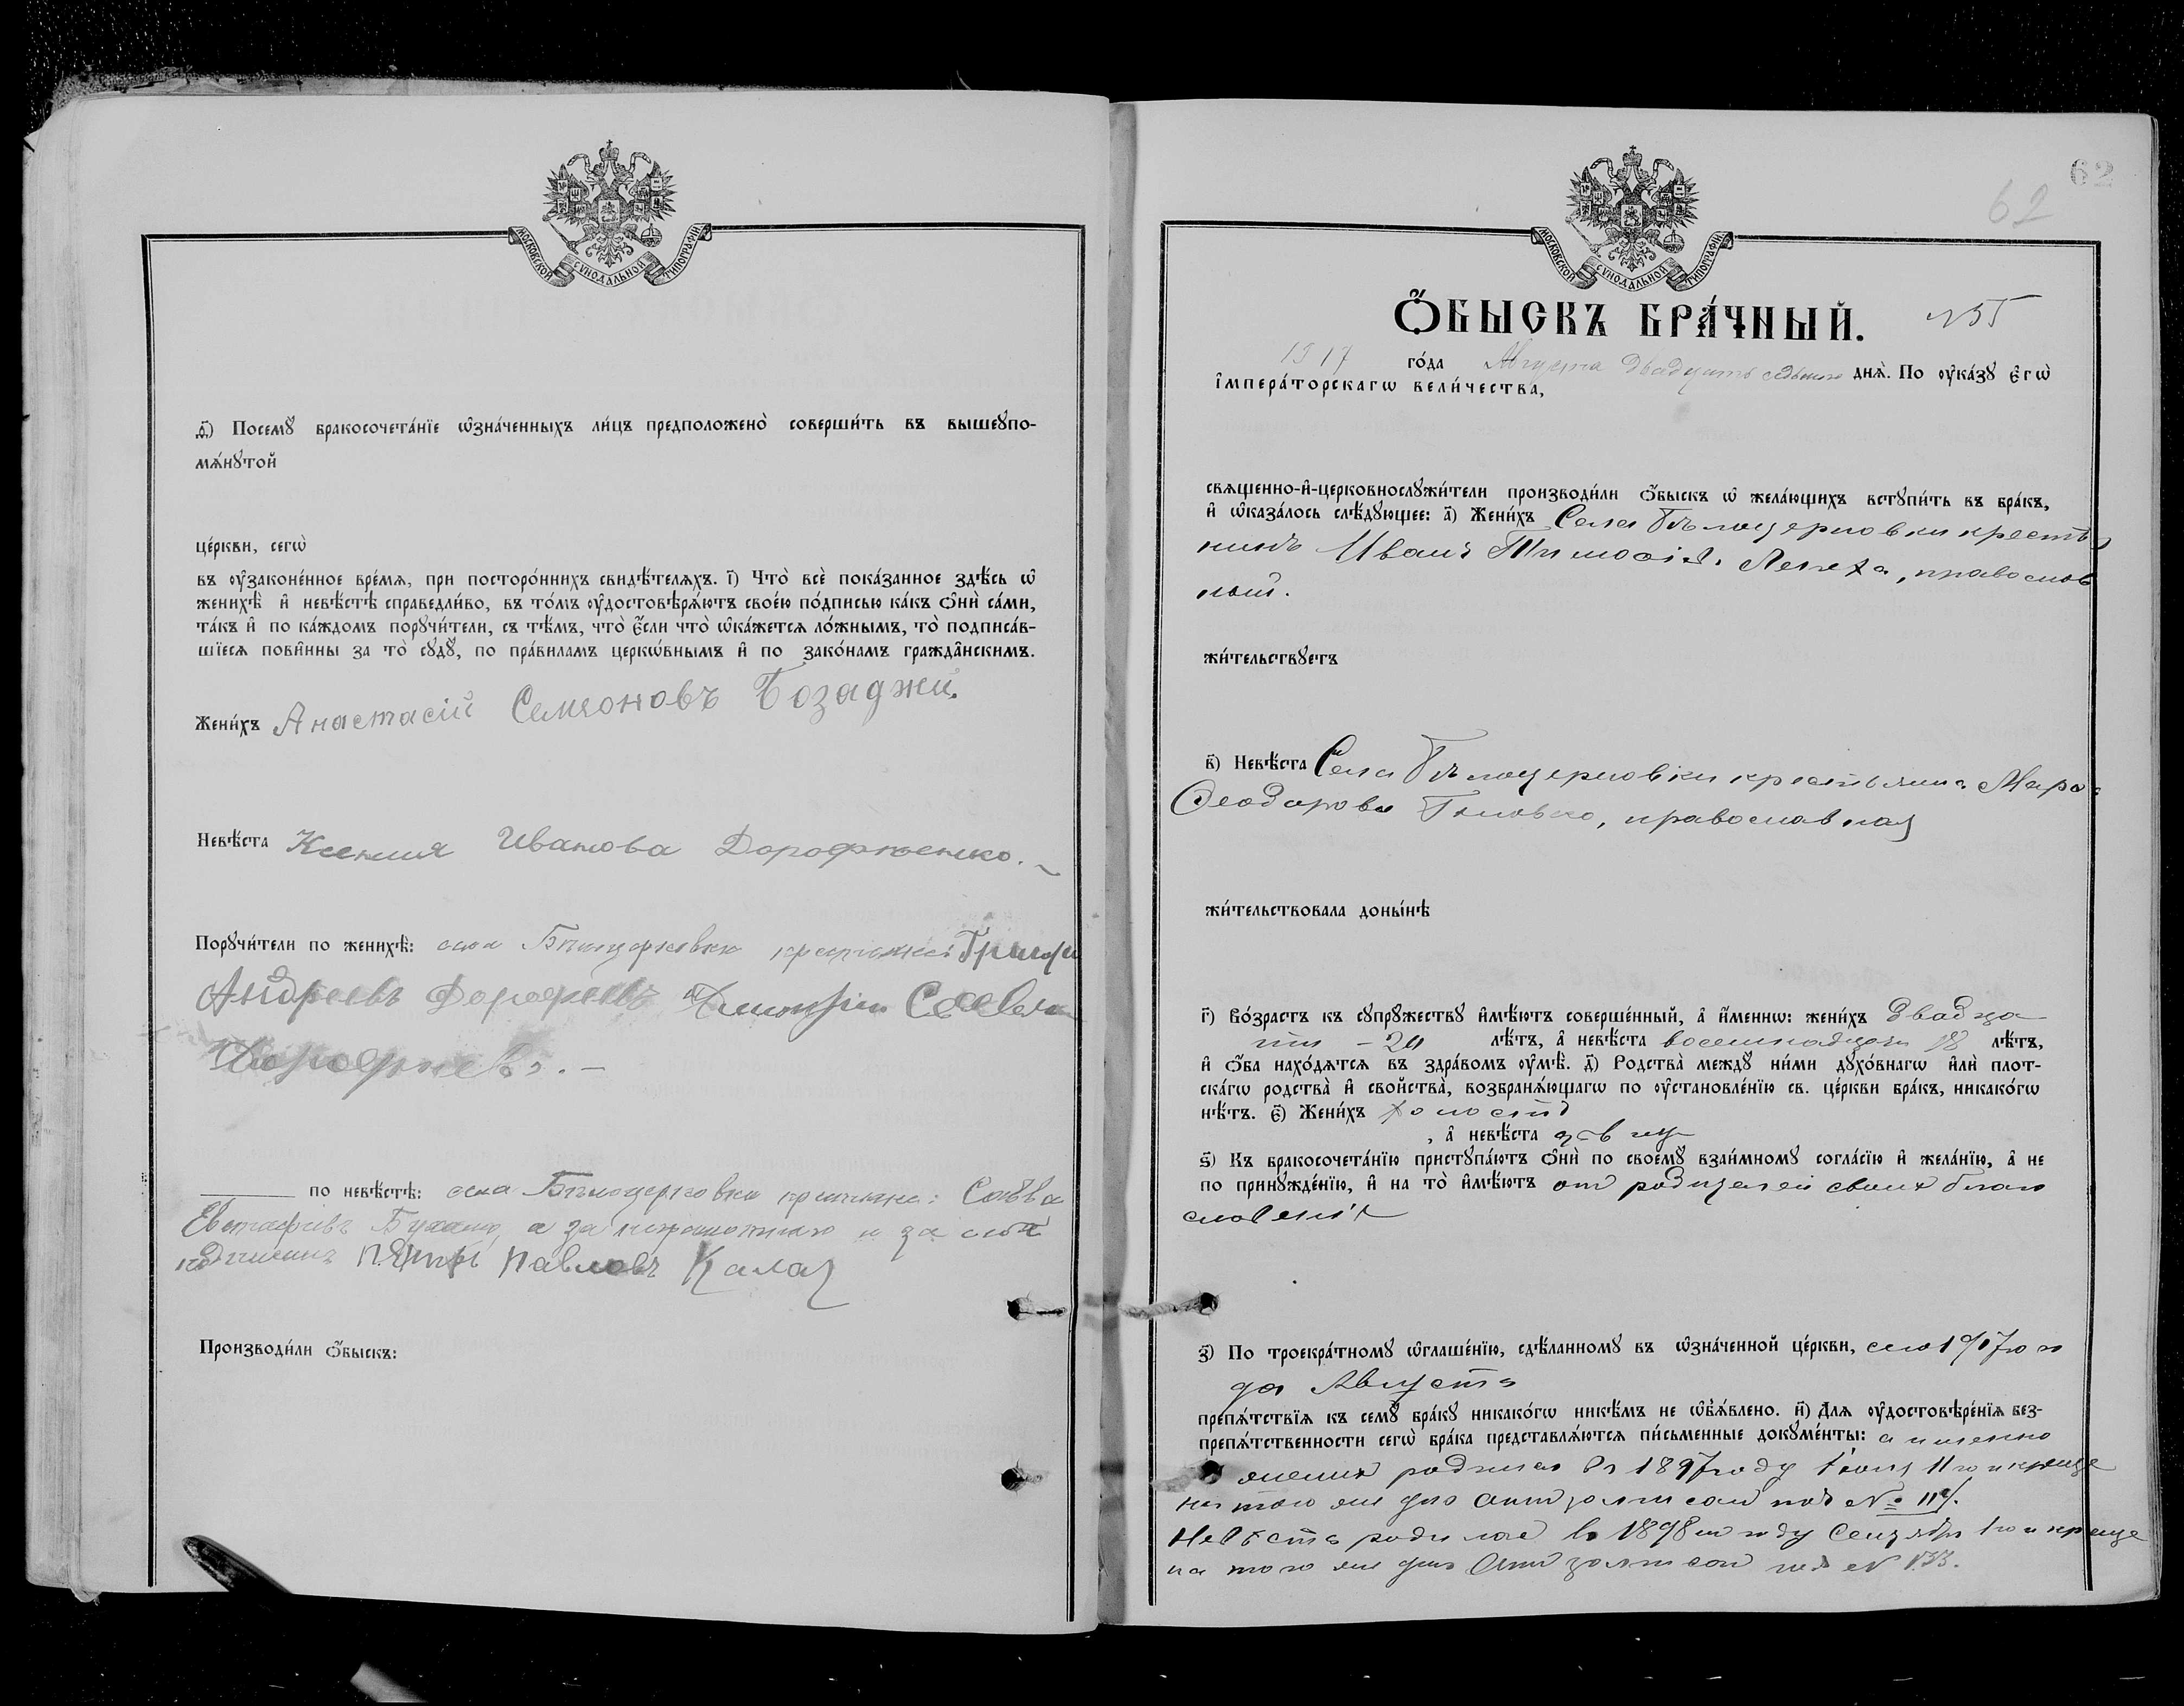 МОСКОВСКОЙ СѴНОДАЛЬНОЙ ТИПОГРАФІИ
ѳ҃) Посемꙋ̀ бракосочета́нїе ѡ҆зна́ченныхъ ли́цъ предположено̀ соверши́ть въ вышеꙋпо-
мѧ́нꙋтой
це́ркви, сегѡ̀
въ ᲂу҆законе́нное вре́мѧ, при посторо́ннихъ свидѣ́телѧхъ. і҃) Что̀ всѐ пока́занное здѣ́сь ѡ҆
женихѣ̀ и҆ невѣ́стѣ справедли́во, въ то́мъ ᲂу҆достовѣрѧ́ютъ свое́ю по́дписью ка́къ ѻ҆нѝ са́ми,
та́къ и҆ по ка́ждомъ порꙋчи́тели, съ тѣ́мъ, что̀ є҆́сли что̀ ѡ҆ка́жетсѧ ло́жнымъ, то̀ подписа́в-
шїесѧ пови́нны за то̀ сꙋдꙋ̀, по пра́виламъ церкѡ́внымъ и҆ по зако́намъ гражда̑нскимъ.
Жени́хъ Анастасій Семеоновъ Бозаджи.
Невѣ́ста Ксенія Иванова Дорофѣенко.
Порꙋчи́тели по женихѣ̀: села Бѣлоцерковки крестьяне: Григорій
Андреевъ Дорофеевъ и Димитрій Саввинъ
Дорофеевъ.
по невѣ́стѣ: села Бѣлоцерковки крестьяне: Савва
Евстафіевъ, а за неграмотнаго и за себя
подписался Пётръ Павловъ Калаг
Производи́ли ѻ҆́быскъ:
62
62
МОСКОВСКОЙ СѴНОДАЛЬНОЙ ТИПОГРАФІИ
Ѻ҆́БЫСКЪ БРА́ЧНЫЙ. №55
1917 го́да Августа двадцать седьмого днѧ̀. По ᲂу҆ка́зꙋ є҆гѡ̀
і҆мпера́торскагѡ вели́чества,
свѧщенно-и҆-церковнослꙋжи́тели производи́ли ѻ҆́быскъ ѡ҆ жела́ющихъ встꙋпи́ть въ бра́къ,
и҆ ѡ҆каза́лось слѣ́дꙋющее: а҃) Жени́хъ Села Бѣлоцерковки крестья
нинъ Иванъ Тимофіев. Лепеха, православ
ный.
жи́тельствꙋетъ
в҃) Невѣ́ста Села Бѣлоцерковки крестьянка Марѳа
Ѳеодорова, православная
жи́тельствовала доны́нѣ
г҃) Во́зрастъ къ сꙋпрꙋ́жествꙋ и҆мѣ́ютъ соверше́нный, а҆ и҆́меннѡ: жени́хъ двадца
ти - 20 лѣ́тъ, а҆ невѣ́ста восемнадцати 18 лѣ́тъ,
и҆ ѻ҆́ба нахо́дѧтсѧ въ здра́вомъ ᲂу҆мѣ̀. д҃) Родства̀ междꙋ̀ ни́ми дꙋхо́внагѡ и҆лѝ плот-
ска́гѡ родства̀ и҆ свойства̀, возбранѧ́ющагѡ по ᲂу҆становле́нїю св. це́ркви бра́къ, никако́гѡ
нѣ́тъ. є҃) Жени́хъ холостъ
, а҆ невѣ́ста дѣвица
ѕ҃) Къ бракосочета́нїю пристꙋпа́ютъ ѻ҆нѝ по своемꙋ̀ взаи́мномꙋ согла́сїю и҆ жела́нїю, а҆ не
по принꙋжде́нїю, и҆ на то̀ и҆мѣ́ютъ от родителей своихъ благо
словеніе
з҃) По троекра́тномꙋ ѡ҆глаше́нїю, сдѣ́ланномꙋ въ ѡ҆зна́ченной це́ркви, сего 1917 го го
да Августа
препѧ́тствїѧ къ семꙋ̀ бра́кꙋ никако́гѡ никѣ́мъ не ѡ҆б̾ѧ́влено. и҃) Длѧ ᲂу҆достовѣре́нїѧ без-
препѧ́тственности сегѡ̀ бра́ка представлѧ́ютсѧ пи́сьменные докꙋме́нты: а именно
жених родился въ 1897 году Іюня 11 го и креще
на того же дня акт записан под № 119.
Невѣста родилась въ 1898 м году Сентября 1 го и креще
на того же дня Акт записан под № 133.